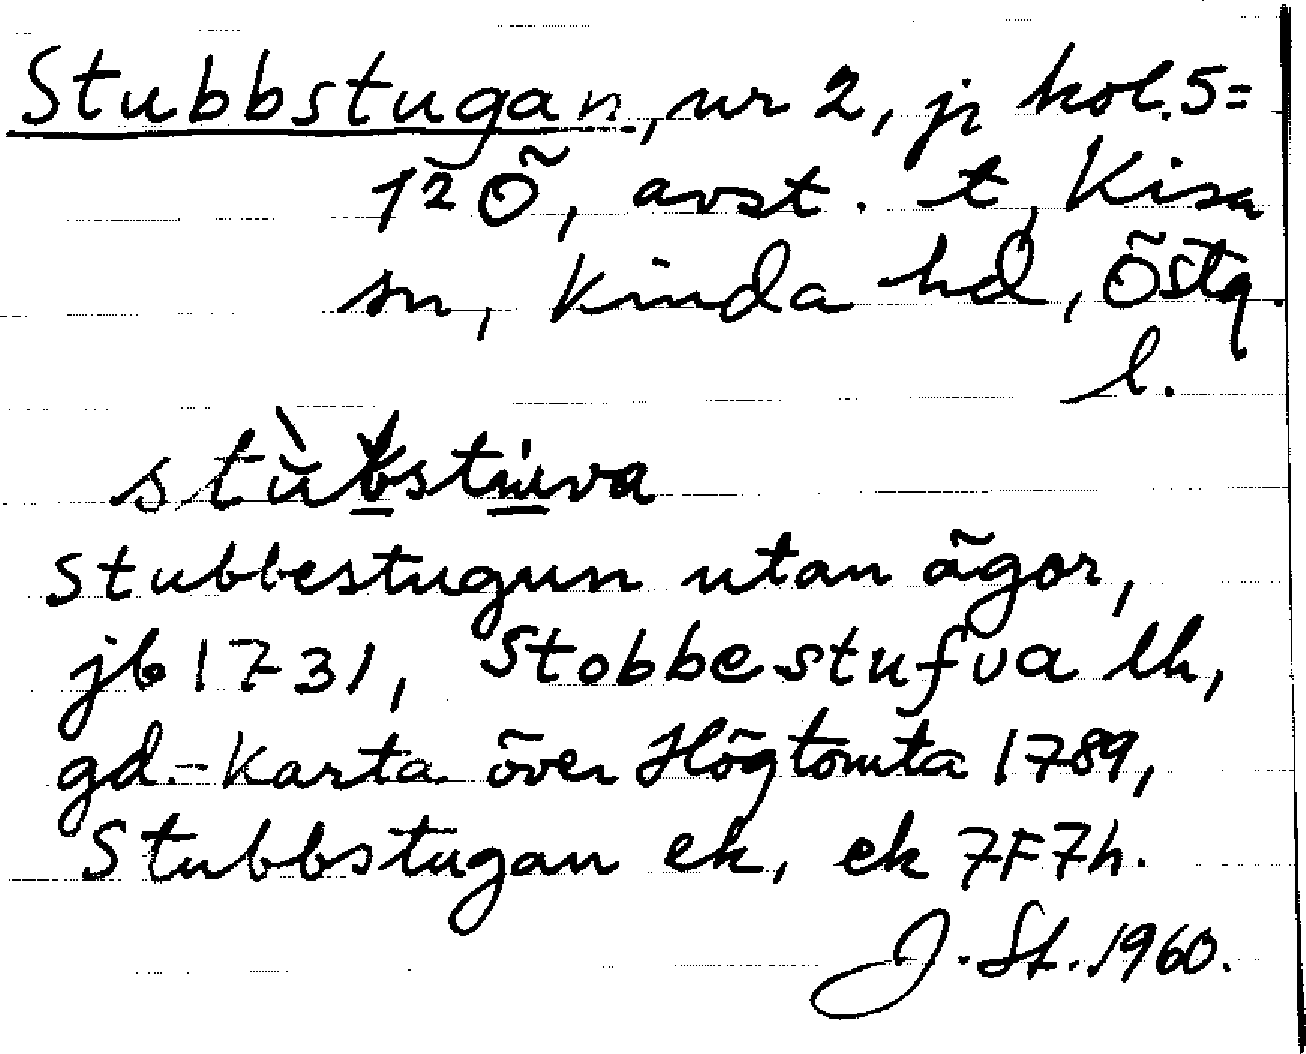 Stubbstugan, nr 2, jr kol. 5=
12Ö, avst. t, Kisa
sn, Kinda hd, Östg.
l.
stùbstuva
Stubbestugun utan ägor,
jb 1731, Stobbestufva lh,
gd.-karta över Högtomta 1789,
Stubbstugan ek, ek 7F7h.
J. St. 1960.